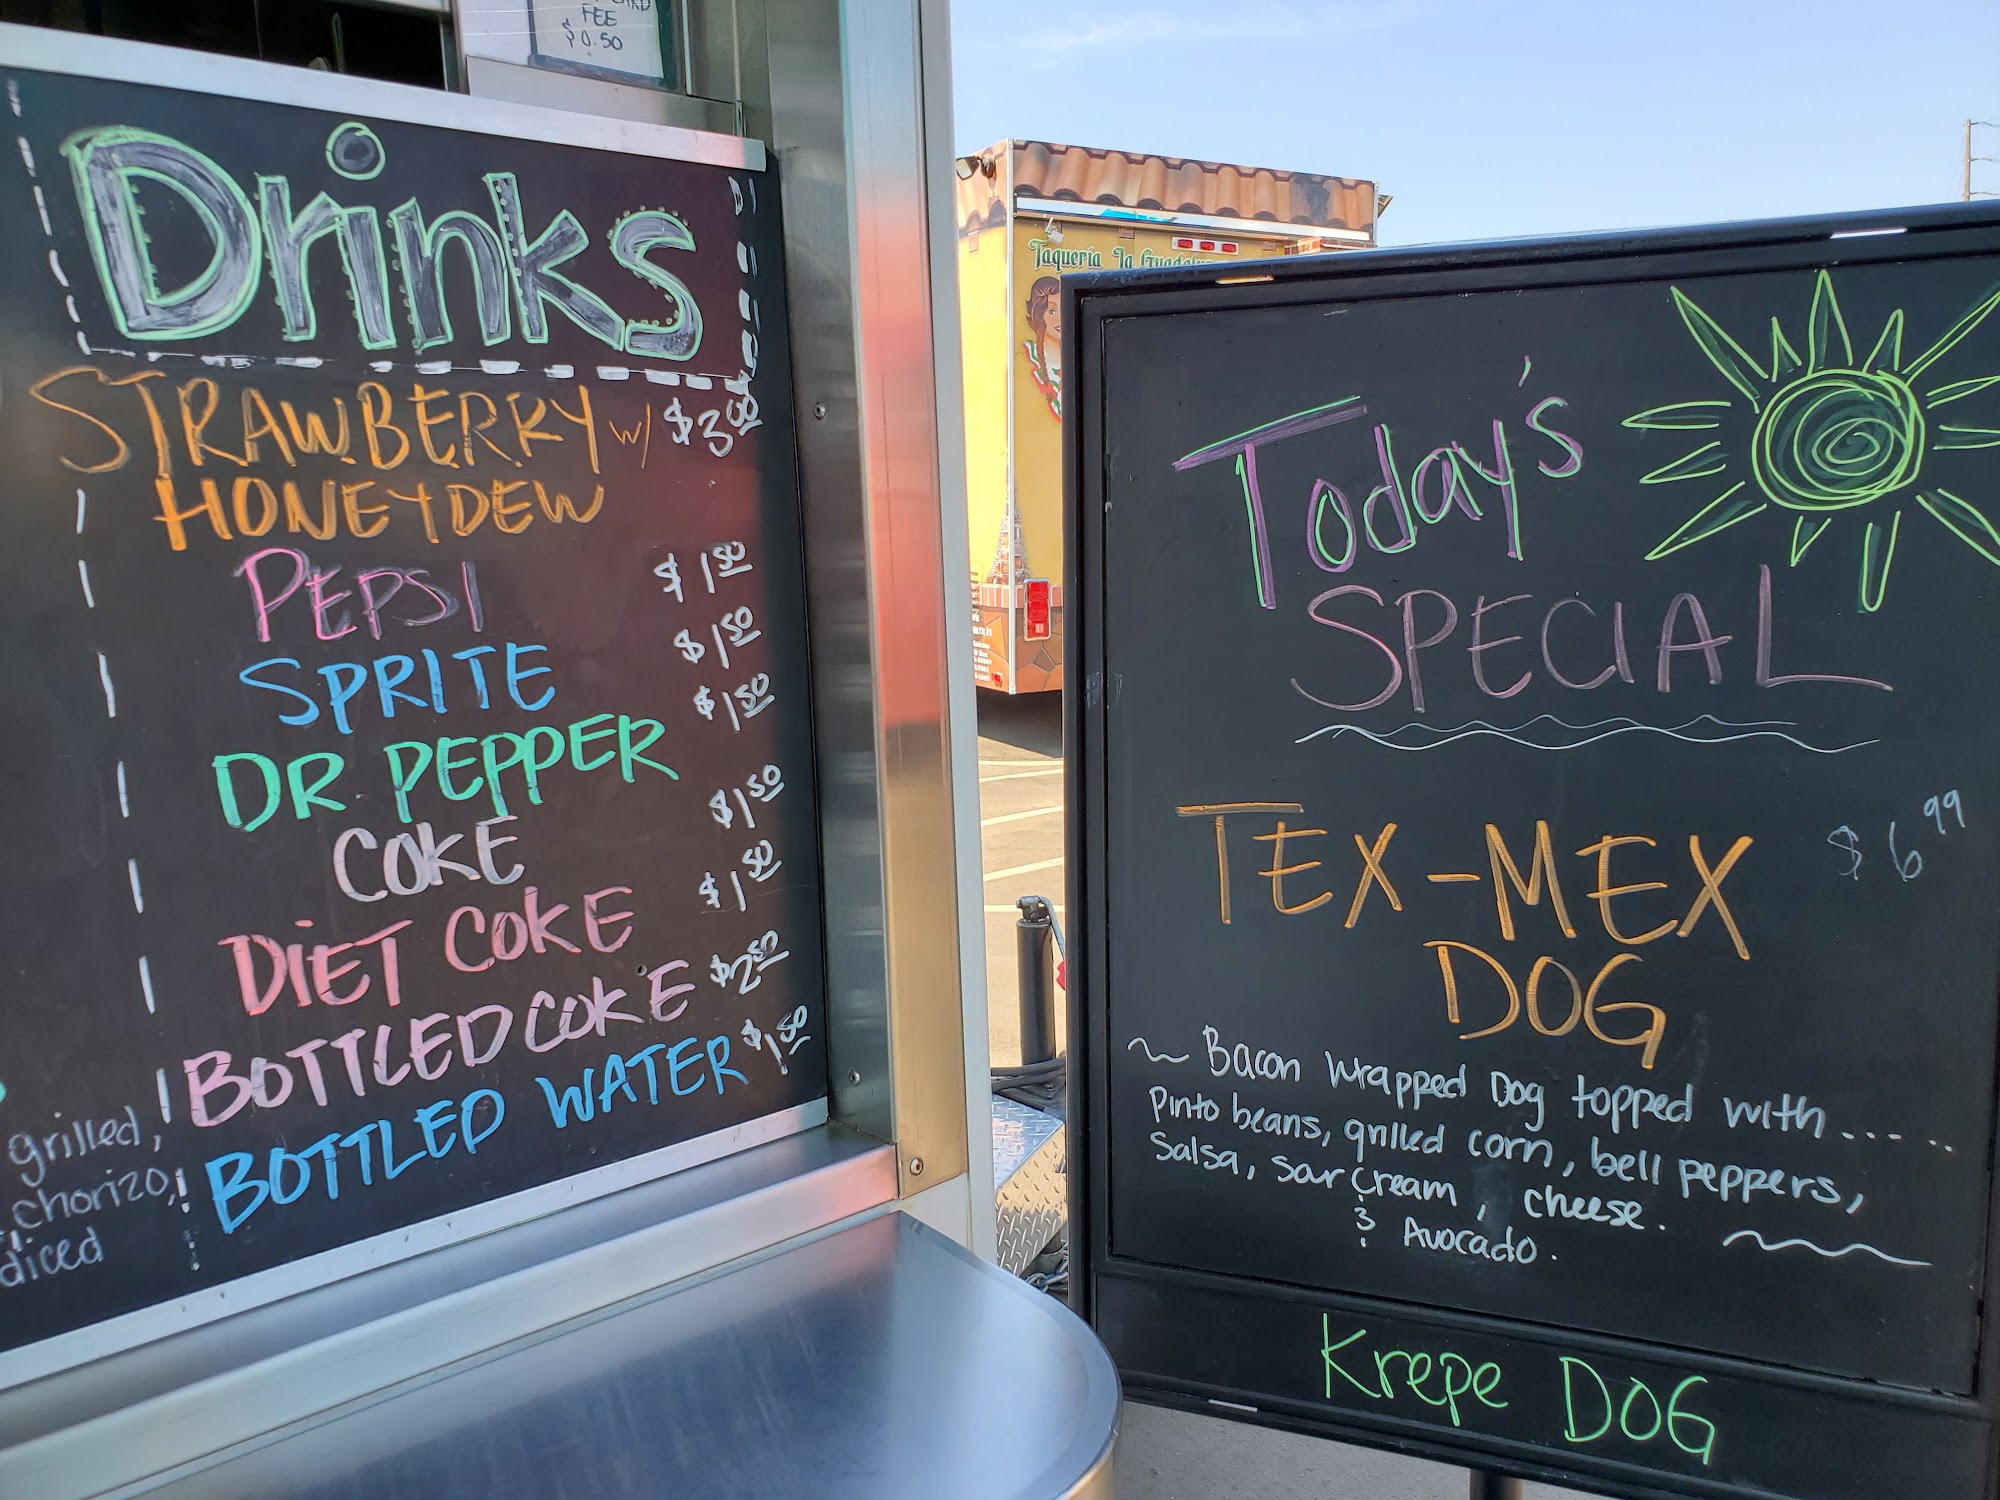 CARD
FEE
$0.50
Drinks
STRAWBERRY w/ $3.00
HONEYDEW
PEPSI $1.50
SPRITE $1.50
DR. PEPPER $1.50
COKE $1.50
DIET COKE $1.50
BOTTLED COKE $2.50
BOTTLED WATER $1.50
grilled,
chorizo,
diced
Taquería La
Today's
SPECIAL
TEX-MEX $6.99
DOG
~ Bacon Wrapped Dog topped with.....
Pinto beans, grilled corn, bell peppers,
Salsa, sour cream, cheese.
& Avocado. ~
Krepe DOG